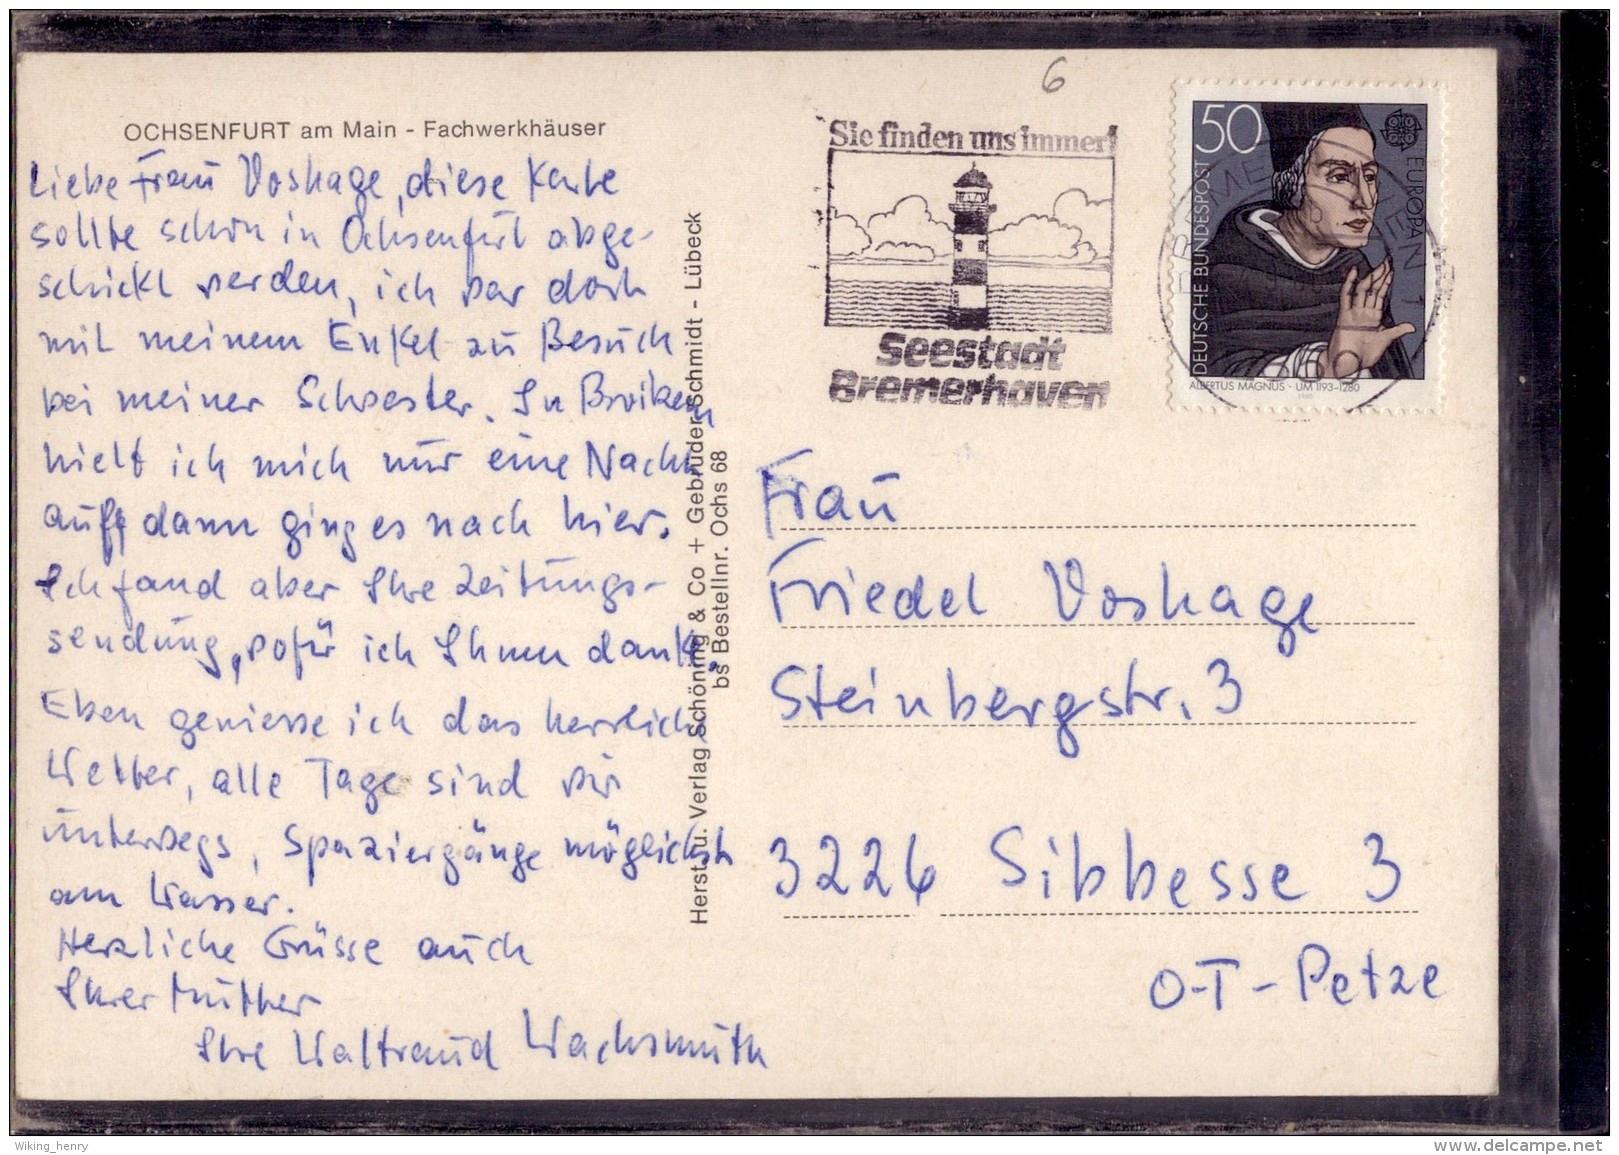 6
OCHSENFURT am Main - Fachwerkhäuser
Liebe Frau Voshage, diese Karte
sollte schon in Ochsenfurt abge-
schickt werden, ich war dort
mit meinem Enkel zu Besuch
bei meiner Schwester. In
hielt ich mich nur eine Nacht
auf, dann ging es nach hier.
Ich fand aber Ihre Zeitungs-
sendung, wofür ich Ihnen danke.
Eben geniesse ich das herrliche
Wetter, alle Tage sind wir
unterwegs, Spaziergänge möglichst
am Wasser.
Herzliche Grüsse auch
Ihrer Mutter
Ihre Waltraud Wachsmuth
Herst. u. Verlag Schöning & Co + Gebrüder Schmidt - Lübeck
bs Bestellnr. Ochs 68
Sie finden uns immer!
Seestadt
Bremerhaven
50
DEUTSCHE BUNDESPOST
EUROPA
CEPT
ALBERTUS MAGNUS · UM 1193-1280
1980
Frau
Friedel Voshage
Steinbergstr. 3
3226 Sibbesse 3
O-T-Petze
Wiking_henry
www.delcampe.net